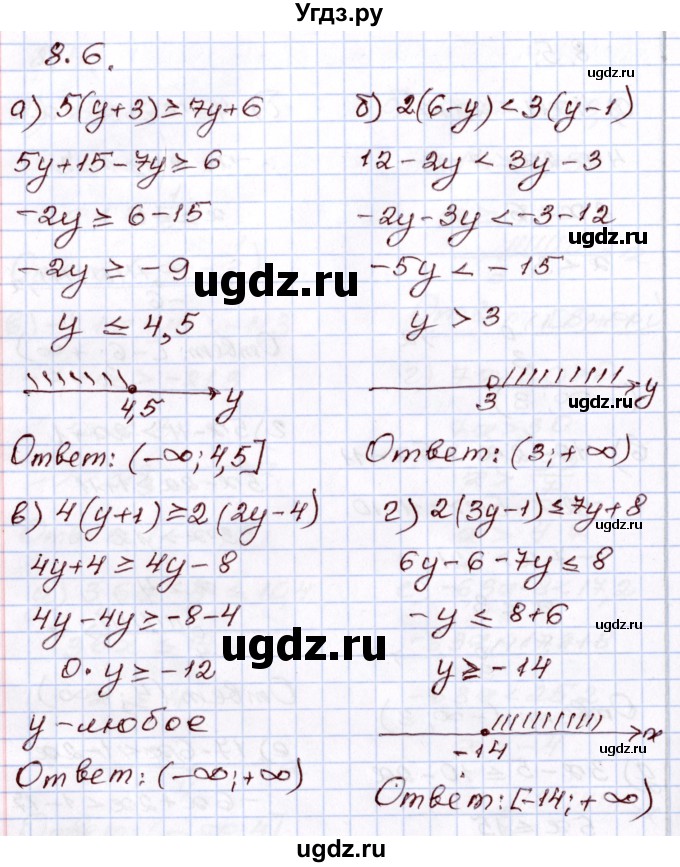 Угдз.ру
8.6.
ugdz.ru
а) 5(y+3)≥7y+6
5y+15-7y≥6
-2y≥6-15
-2y≥-9
y≤4,5
4,5 y
Ответ: (-∞; 4,5]
б) 2(6-y)<3(y-1)
ugdz.ru
12-2y<3y-3
-2y-3y<-3-12
ugdz.ru
-5y<-15
ugdz.ru
y>3
3 y
ugdz.ru
Ответ: (3; +∞)
в) 4(y+1)≥2(2y-4)
4y+4≥4y-8
4y-4y≥-8-4
0·y≥-12
y-любое
Ответ: (-∞; +∞)
г) 2(3y-1)≤7y+8
ugdz.ru
6y-6-7y≤8
-y≤8+6
ugdz.ru
ugdz.ru
y≥-14
-14 x
ugdz.ru
Ответ: [-14; +∞)
ugdz.ru
Угдз.ру